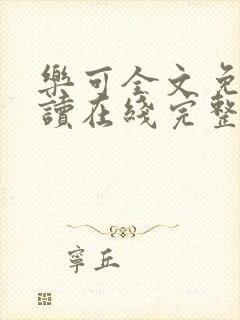 樂可全文免
讀在綫完整
寧丘